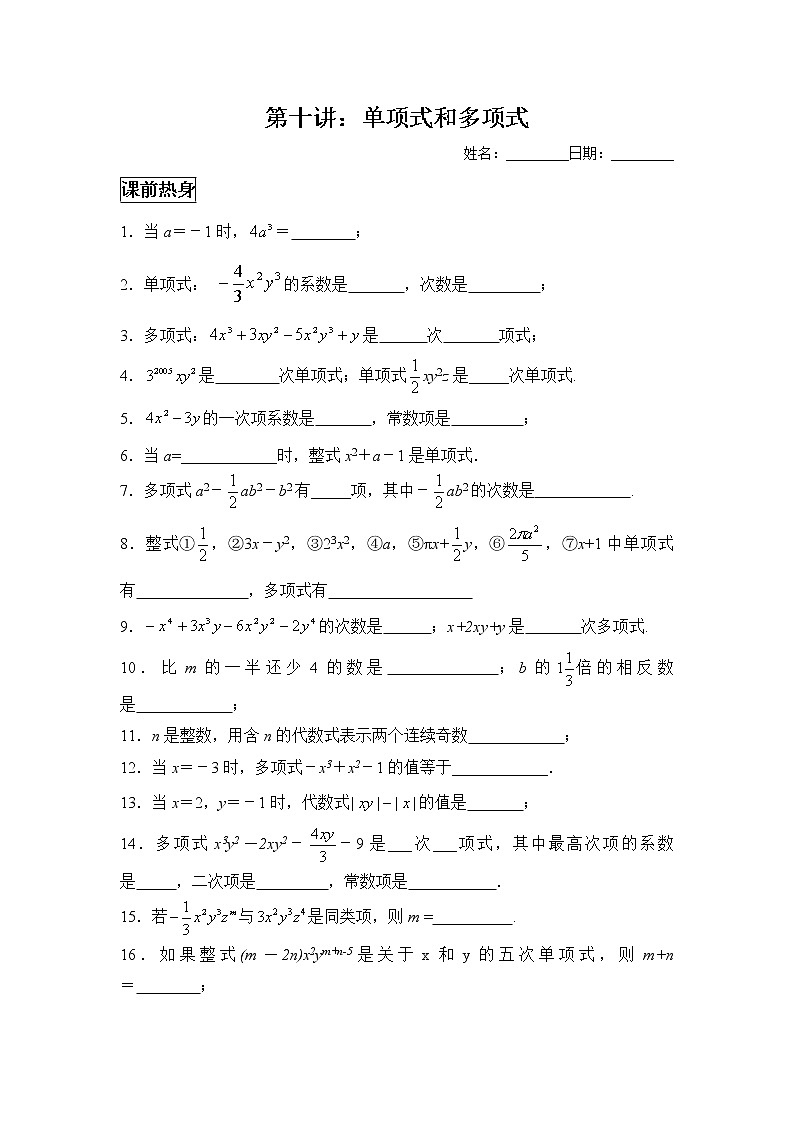 第十讲：单项式和多项式
姓名：________日期：________
课前热身
1．当a＝－1时，4a³＝________；
2．单项式： －4/3 x²y³的系数是_______，次数是_________；
3．多项式：4x³＋3xy²－5x²y³＋y是______次_______项式；
4．3²⁰⁰⁵xy²是________次单项式；单项式1/2xy²z是_____次单项式.
5．4x²－3y的一次项系数是_______，常数项是_________；
6．当a=____________时，整式x²＋a－1是单项式．
7．多项式a²－1/2ab²－b²有_____项，其中－1/2ab²的次数是____________.
8．整式①1/2，②3x－y²，③2³x²，④a，⑤πx+1/2y，⑥2πa²/5，⑦x+1中单项式
有______________，多项式有__________________
9．－x⁴＋3x³y－6x²y²－2y⁴的次数是______；x+2xy+y是_______次多项式.
10．比m的一半还少4的数是______________；b的1 1/3倍的相反数
是____________；
11．n是整数，用含n的代数式表示两个连续奇数____________；
12．当x＝－3时，多项式－x³＋x²－1的值等于____________.
13．当x＝2，y＝－1时，代数式|xy|－|x|的值是_______；
14．多项式x³y²－2xy²－4xy/3－9是___次___项式，其中最高次项的系数
是_____，二次项是_________，常数项是___________．
15．若－1/3x²y³zᵐ与3x²y³z⁴是同类项，则m =__________.
16．如果整式(m－2n)x²yᵐ⁺ⁿ⁻⁵是关于x和y的五次单项式，则m+n
＝________；